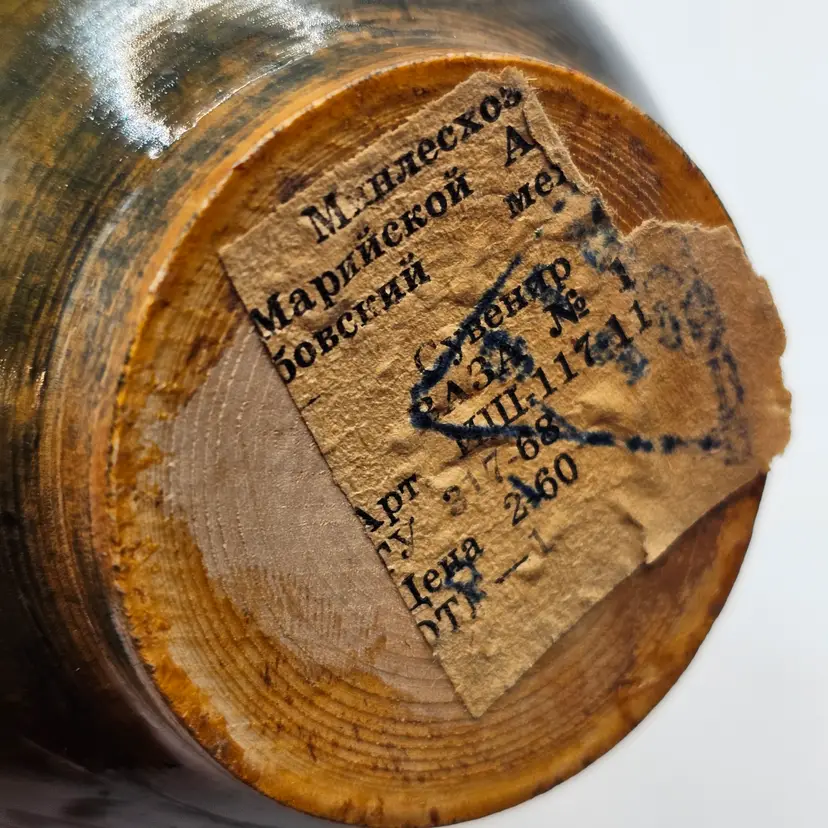 Минлесхоз
Марийской А
бовский мех
Сувенир
ВАЗА № 1
МШ-117-11
Арт
ТУ 317-68
Цена 2-60
ОТК—1